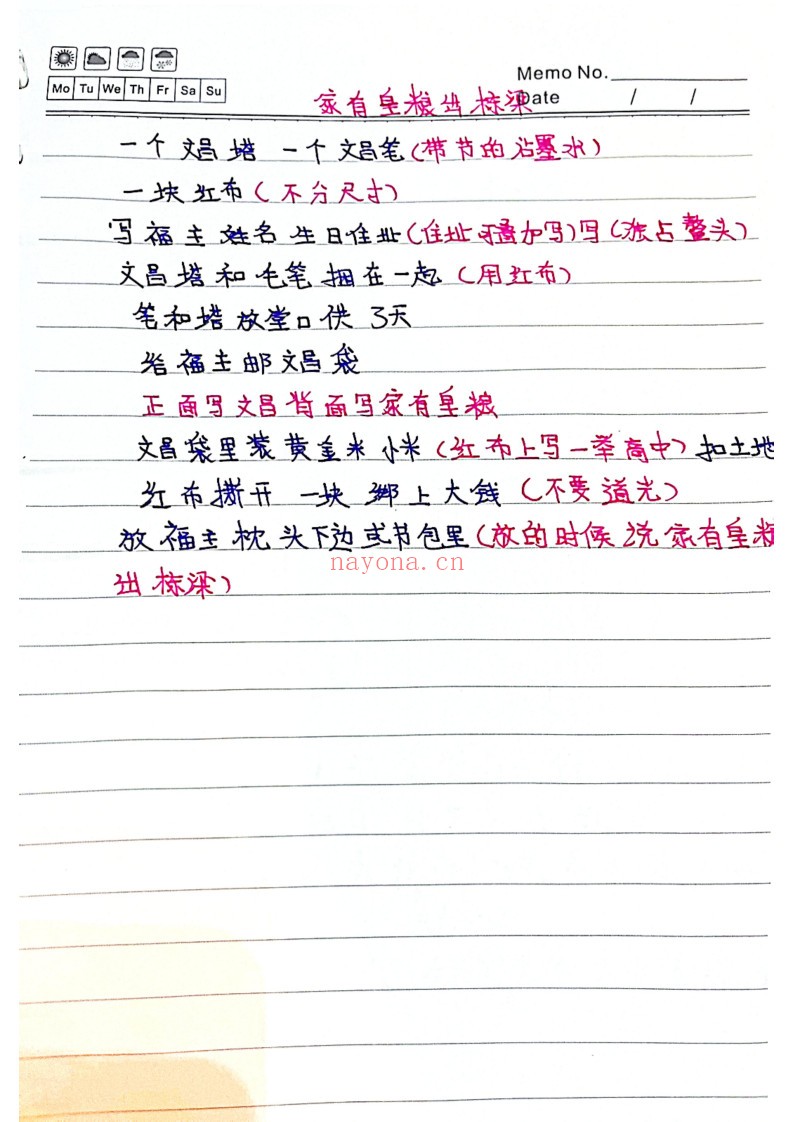 Memo No.
Mo Tu We Th Fr Sa Su
Date / /
家有皇粮出栋梁
一个文昌塔 一个文昌笔(带节的沾墨水)
一块红布(不分尺寸)
写福主姓名生日住址(住址可叠加写)写(独占鳌头)
文昌塔和毛笔捆在一起(用红布)
笔和塔放堂口供3天
给福主邮文昌袋
正面写文昌背面写家有皇粮
文昌袋里装黄金米小米(红布上写一举高中)扣土地
红布撕开一块绑上大钱(不要道光)
放福主枕头下边或书包里(放的时候说家有皇粮
出栋梁)
nayona.cn